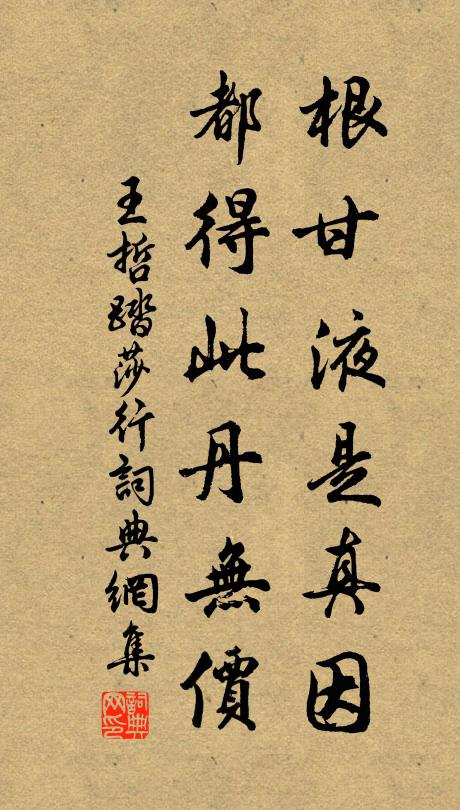 根甘液是真因
都得此丹無價
王哲踏莎行詞典網集
詞典网印